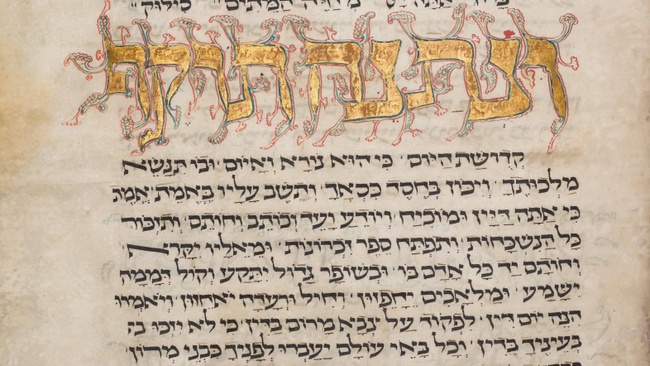 אתה מחיה המתים סילוק
ונתנה תוקף
קדושת היום ׳ כי הוא נורא ואיום ׳ ובו תנשא
מלכותך ׳ ויכון בחסד כסאך ׳ ותשב עליו באמת ׳ אמת
כי אתה דיין ומוכיח ׳ ויודע ועד וכותב וחותם ׳ ותזכור
כל הנשכחות ׳ ותפתח ספר זכרונות ׳ ומאליו יקרא
וחותם יד כל אדם בו ׳ ובשופר גדול יתקע וקול דממה
ישמע ׳ ומלאכים יחפזון ׳ וחיל ורעדה יאחזון ׳ ויאמרו
הנה יום דין ׳ לפקוד על צבא מרום בדין ׳ כי לא יזכו
בעיניך בדין ׳ וכל באי עולם יעברו לפניך כבני מרון ׳